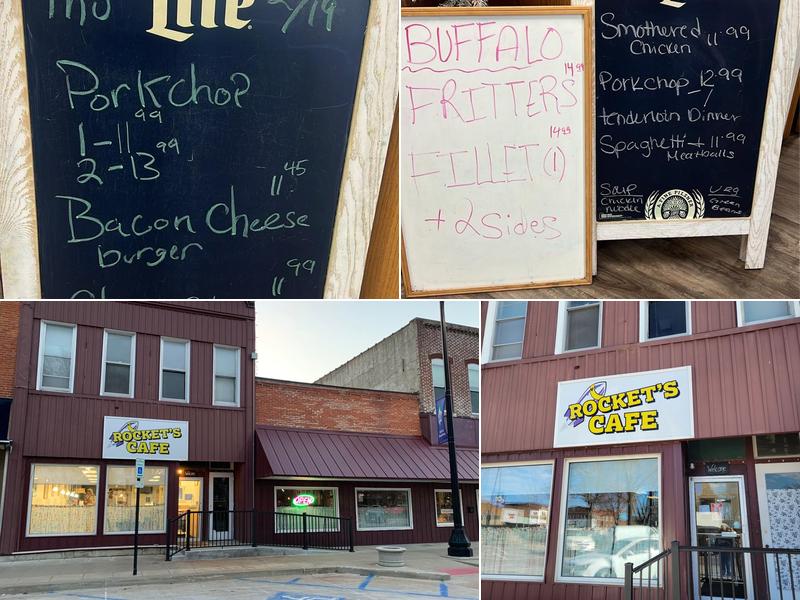 Thu Lite 2/19
Porkchop
1-11⁹⁹
2-13⁹⁹
11.45
Bacon Cheese
burger
11⁹⁹
BUFFALO
14⁹⁹
FRITTERS
14⁹⁹
FILLET (1)
+ 2 Sides
Smothered 11.99
Chicken
Porkchop 12.99
tenderloin Dinner
Spaghetti + 11.99
Meatballs
Soup
Chicken
Noodle
A FINE PILSNER
Veg
Green
Beans
ROCKET'S
CAFE
OPEN
ROCKET'S
CAFE
Welcome